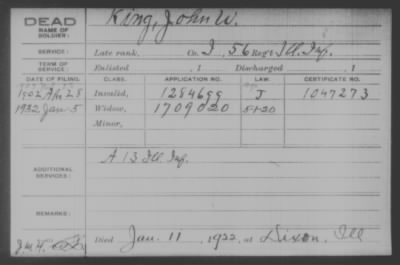 DEAD
NAME OF SOLDIER:
King, John W.
SERVICE:
Late rank, Co. I, 56 Reg't Ill. Inf.
TERM OF SERVICE:
Enlisted , 1 Discharged , 1
DATE OF FILING. CLASS. APPLICATION NO. LAW. CERTIFICATE NO.
1902 Apr 28 Invalid, 1284699 J 1047273
1932 Jan 5 Widow, 1709020 5-1-20
Minor,
ADDITIONAL SERVICES:
A 13 Ill. Inf.
REMARKS:
Died Jan. 11, 1922, at Dixon, Ill